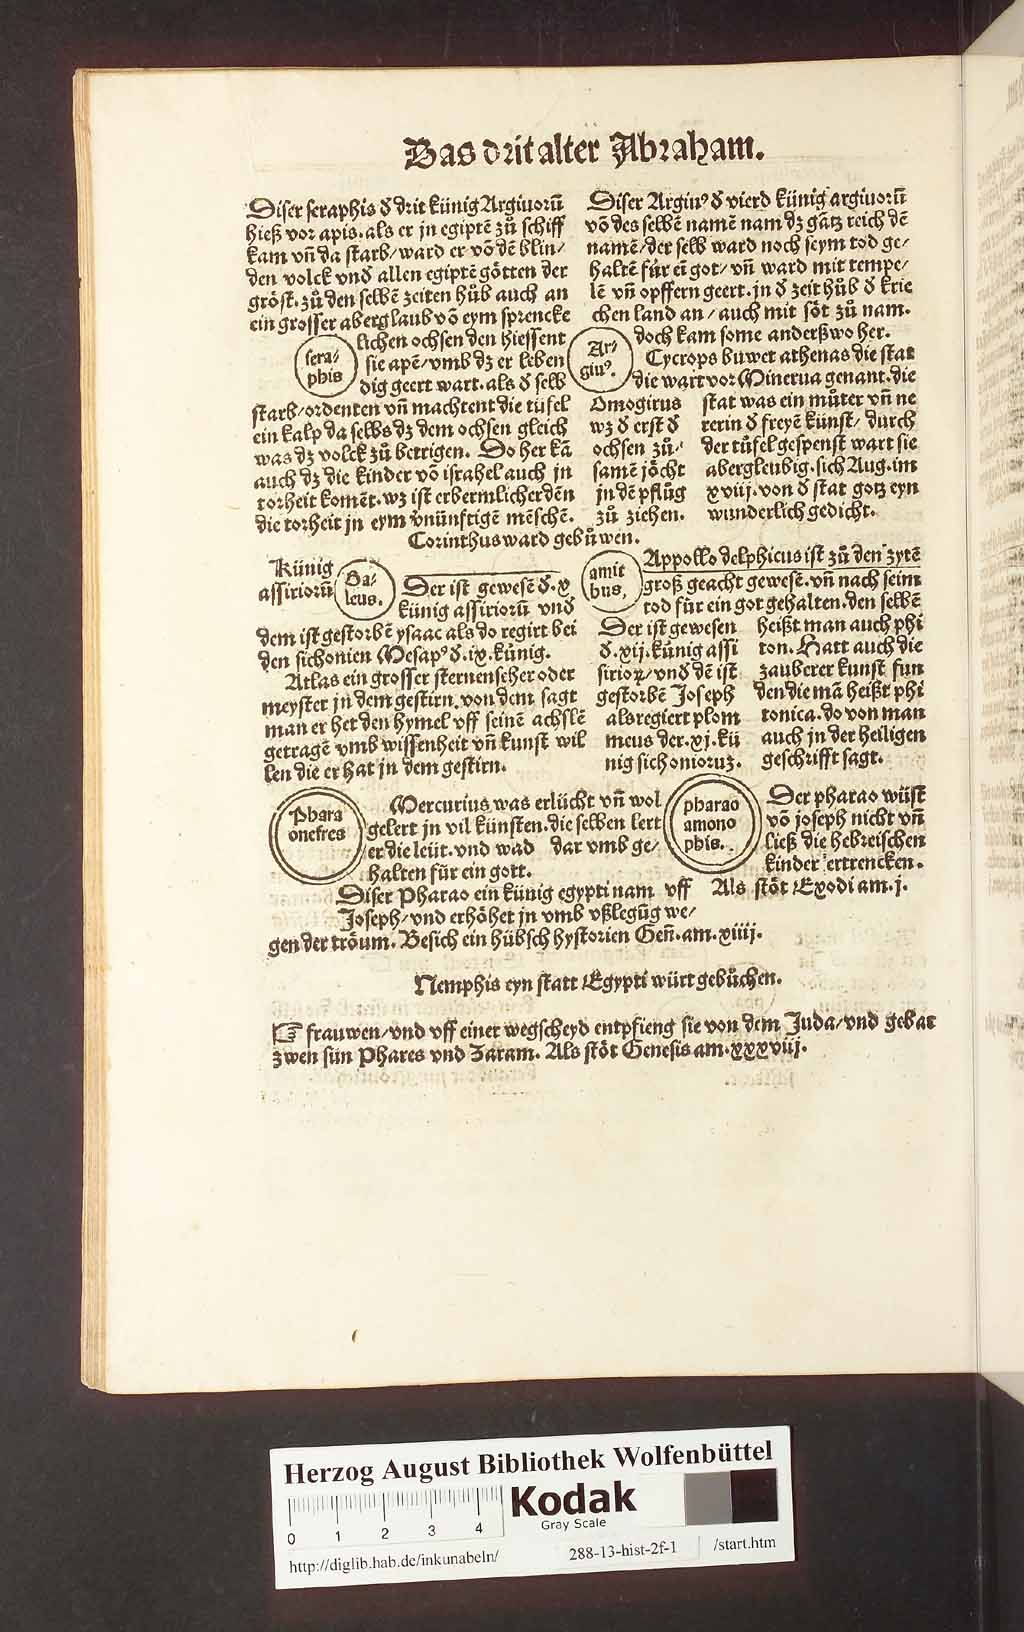 Das drit alter Abraham.
Diser seraphis d̕ drit künig Argiuorū
hieß vor apis. als er jn egiptē zů schiff
kam vn̄ da starb/ ward er võ dē blin/
den volck vnd allen egiptē götten der
gröst. zů den selbē zeiten hůb auch an
ein grosser aberglaub võ eym sprencke
lichen ochsen den hiessent
sera/
phis
sie apē/ vmb dz er leben
dig geert wart. als d̕ selb
starb/ ordenten vn̄ machtent die tüfel
ein kalp da selbs dz dem ochsen gleich
was dz volck zů betrigen. Do her kā
auch dz die kinder võ israhel auch jn
torheit komēt. wz ist erbermlicher dēn
die torheit jn eym vnünftigē mēschē.
Diser Arginꝰ d̕ vierd künig argiuorū
võ des selbē namē nam dz gātz reich dē
namē/ der selb ward noch seym tod ge/
haltē für eī got/ vn̄ ward mit tempe/
lē vn̄ opffern geert. jn d̕ zeit hůb d̕ krie
chen land an/ auch mit söt zů nam.
doch kam some anderßwo her.
Ar/
giuꝰ.
Cycrops buwet athenas die stat
die wart vor Minerua genant. die
Omogirus
wz d̕ erst d̕
ochsen zů/
samē jöcht
jn dē pflůg
zů ziehen.
stat was ein můter vn̄ ne
rerin d̕ freyē künst/ durch
der tüfel gespenst wart sie
abergleubig. sich Aug. im
xviij. von d̕ stat gotz eyn
wunderlich gedicht.
Corinthus ward gebůwen.
Künig
assiriorū
Ba/
leus.
Der ist gewesē d̕. x
künig assiriorū vnd
dem ist gestorbē ysaac als do regirt bei
den sichonien Mesapꝰ d̕. ix. künig.
Atlas ein grosser sternenseher oder
meyster jn dem gestirn. von dem sagt
man er het den hymel vff seinē achslē
getragē vmb wissenheit vn̄ kunst wil
len die er hat jn dem gestirn.
amit
bus,
Appollo delphicus ist zů den zytē
groß geacht gewesē. vn̄ nach seim
tod für ein got gehalten. den selbē
Der ist gewesen
d̕. xij. künig assi
sirioꝝ/ vnd dē ist
gestorbē Joseph
als regiert plom
meus der. xj. kü
nig sichonioruz.
heißt man auch phi
ton. Hatt auch die
zauberer kunst fun
den die mā heißt phi
tonica. do von man
auch jn der heiligen
geschrifft sagt.
Phara
onefres
Mercurius was erlücht vn̄ wol
gelert jn vil künsten. die selben lert
er die leüt. vnd wad dar vmb ge/
halten für ein gott.
pharao
amono
phis.
Der pharao wüst
võ joseph nicht vn̄
ließ die hebreischen
kinder ertrencken.
Als stöt Exodi am. j.
Diser Pharao ein künig egypti nam vff
Joseph/ vnd erhöhet jn vmb vßlegūg we/
gen der tröum. Besich ein hübsch hystorien Gen̄. am. xiiij.
Nemphis eyn statt Egypti würt gebůchen.
☞ frauwen/ vnd vff einer wegscheyd entpfieng sie von dem Juda/ vnd gebar
zwen sün Phares vnd Zaram. Als stöt Genesis am. xxxviij.
Herzog August Bibliothek Wolfenbüttel
0 1 2 3 4
Kodak
Gray Scale
http://diglib.hab.de/inkunabeln/
288-13-hist-2f-1
/start.htm